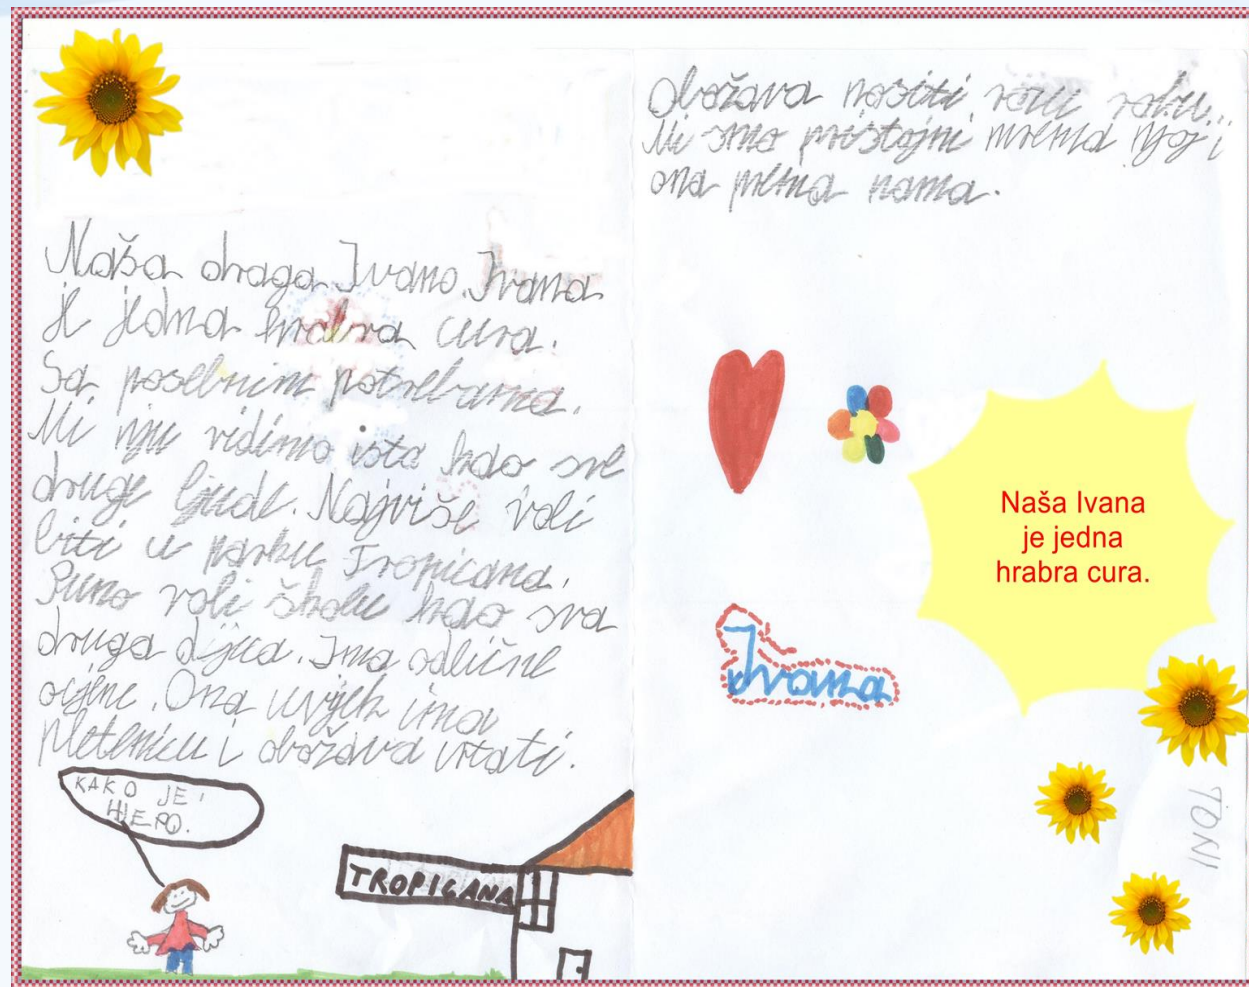 Naša draga Ivano. Ivana
je jedna hrabra cura.
Sa posebnim potrebama.
Mi nju vidimo ista kao sve
druge ljude. Najviše voli
biti u parku Tropicana.
Puno voli školu kao sva
druga djeca. Ima odlične
ocjene. Ona uvijek ima
pletenicu i obožava crtati.
KAKO JE
LIJEPO.
TROPICANA
Obožava nositi
Mi smo pristojni prema njoj i
ona prema nama.
Naša Ivana
je jedna
hrabra cura.
Ivana
TONI